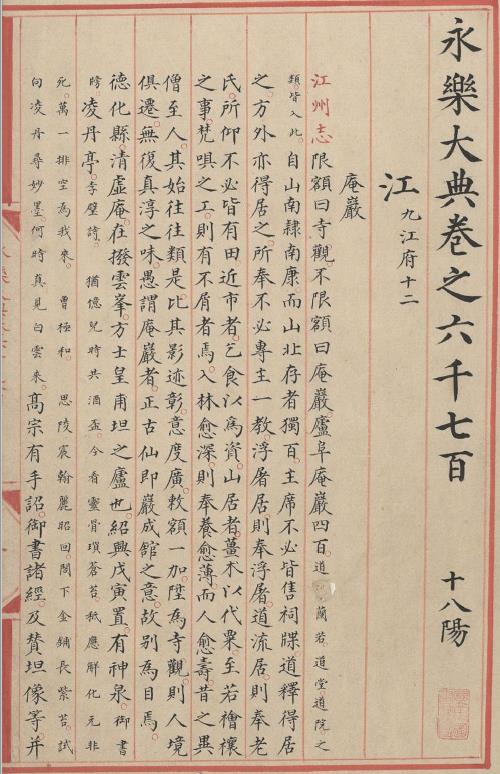 永樂大典卷之六千七百 十八陽
江 九江府十二
庵巖
江州志 限額曰寺觀。不限額曰庵巖。廬阜庵巖四百。道蘭若。道堂道院之
類。皆入此。自山南隸南康。而山北存者獨百。主席不必皆售祠牒。道釋得居
之。方外亦得居之。所奉不必專主一教。浮屠居則奉浮屠。道流居則奉老
氏。所仰不必皆有田。近市者。乞食以為資。山居者。薑木以代粟。至若禬禳
之事。梵唄之工。則有不屑者焉。入林愈深。則奉養愈薄。而人愈壽。昔之異
僧至人。其始往往類是。比其影迹彰。意度廣。敕額一加。陞為寺觀。則人境
俱遷。無復真淳之味。愚謂庵巖者。正古仙即巖成館之意。故別為目焉。
德化縣。清虛庵。在撥雲峯。方士皇甫坦之廬也。紹興戊寅置。有神泉。御書
牓 凌丹亭。李壁詩。猶億兒時共酒盃。今看靈骨蒼苔。秪應解化元非
死。萬一排空為我來。曹極和。思陵宸翰麗昭回。閣下金鋪長紫苔。試
向凌丹尋妙墨。何時真見白雲來。高宗有手詔。御書諸經。及贊坦像等。并